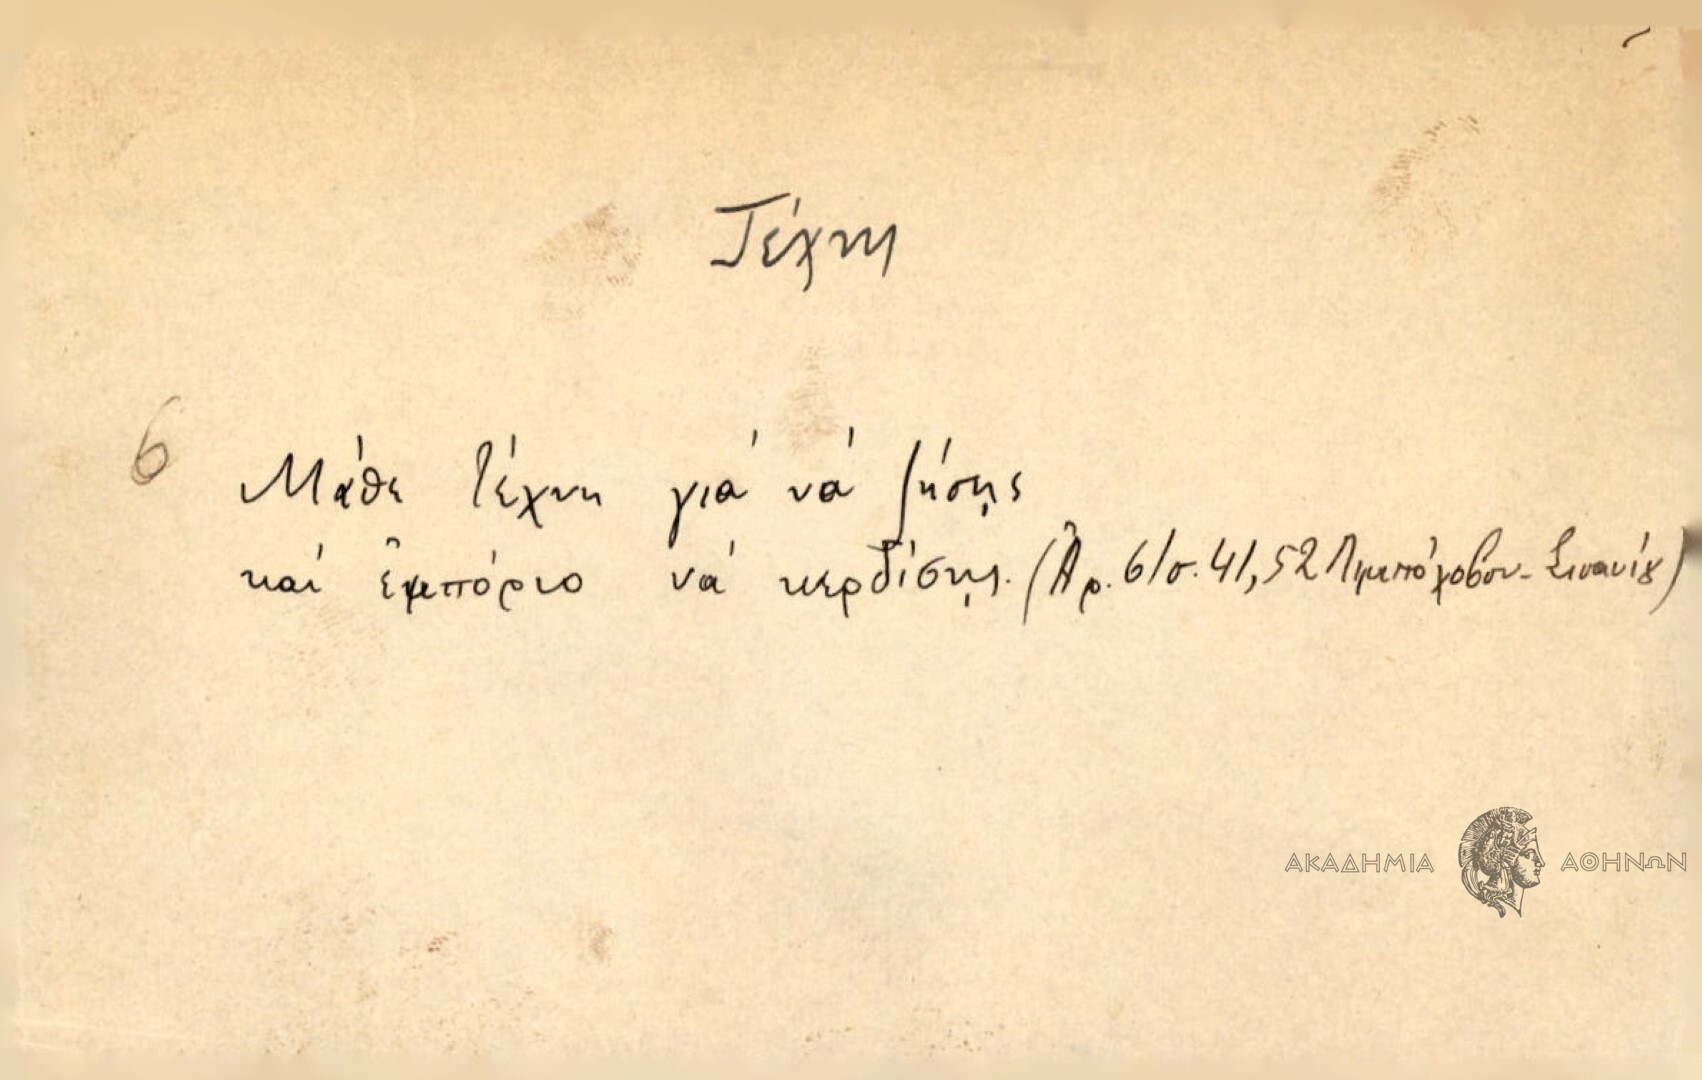 Τέχνη
6 Μάθε τέχνη γιά νά ζήσῃς
καί ἐμπόριο νά κερδίσῃς. (Ἀρ. 6/σ. 41,52
ΑΚΑΔΗΜΙΑ ΑΘΗΝΩΝ